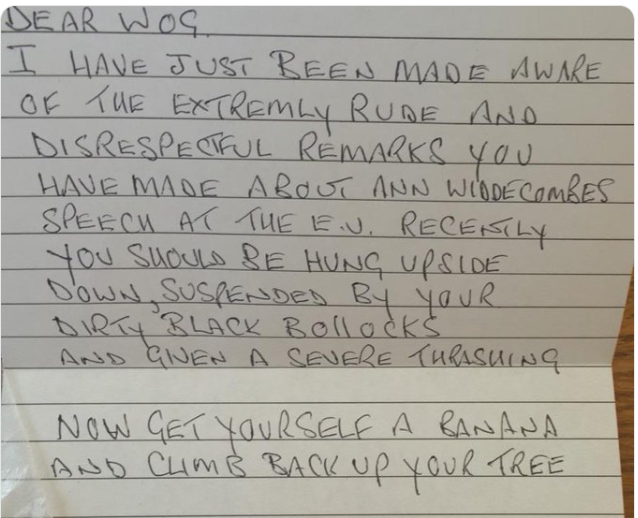 DEAR WOG.
I HAVE JUST BEEN MADE AWARE
OF THE EXTREMLY RUDE AND
DISRESPECTFUL REMARKS YOU
HAVE MADE ABOUT ANN WIDDECOMBES
SPEECH AT THE E.U. RECENTLY
YOU SHOULD BE HUNG UPSIDE
DOWN, SUSPENDED BY YOUR
DIRTY BLACK BOLLOCKS
AND GIVEN A SEVERE THRASHING
NOW GET YOURSELF A BANANA
AND CLIMB BACK UP YOUR TREE